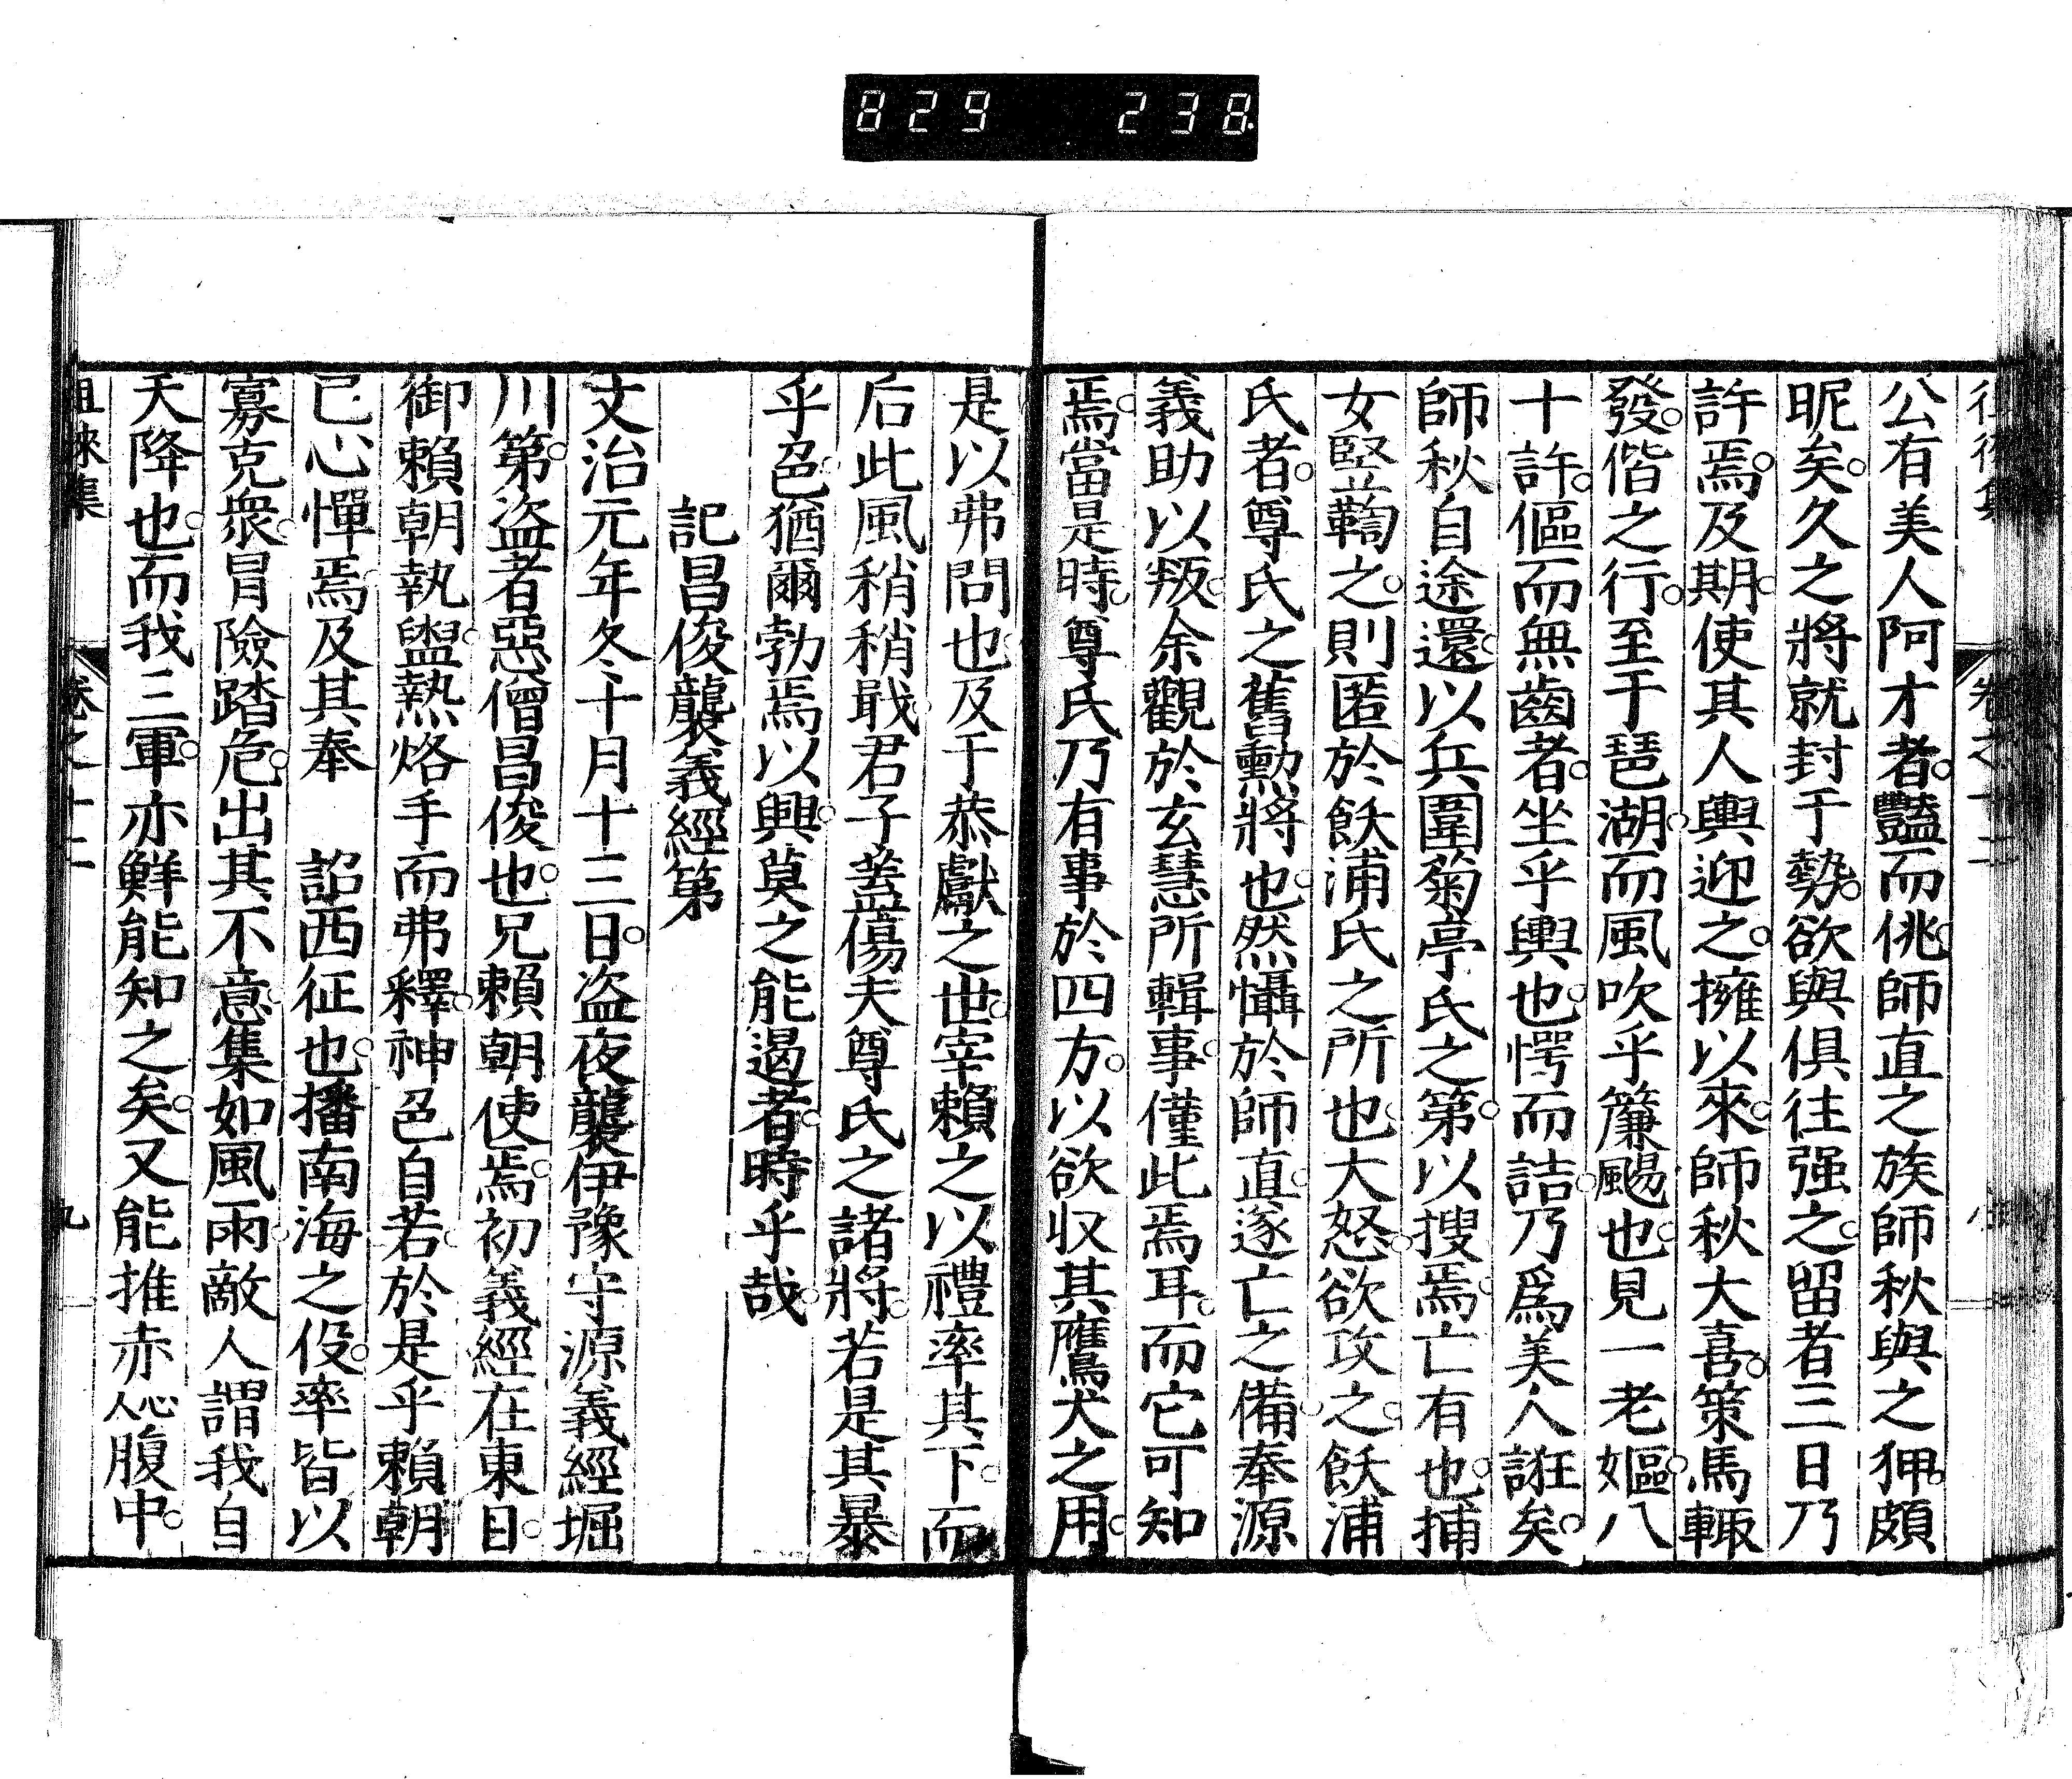 829 238
公有美人阿才者。豔而佻。師直之族師秋與之狎。頗
昵矣。久之將就封于勢。欲與俱往强之。留者三日乃
許焉。及期。使其人輿迎之。擁以來。師秋大喜。策馬輙
發。偕之行。至于琶湖。而風吹乎簾颺也。見一老嫗。八
十許。傴而無齒者。坐乎輿也。愕而詰。乃爲美人誑矣。
師秋自途還。以兵圍菊亭氏之第。以搜焉。亡有也。捕
女竪鞫之。則匿於飫浦氏之所也。大怒。欲攻之。飫浦
氏者。尊氏之舊勲將也。然懾於師直。遂亡之備。奉源
義助以叛。余觀於玄慧所輯事。僅此焉耳。而它可知
焉。當是時。尊氏乃有事於四方。以欲収其鷹犬之用。
是以弗問也。及于恭獻之世。宰賴之以禮率其下。而
后此風稍稍戢。君子葢傷夫尊氏之諸將。若是其暴
乎。色猶爾勃焉以興。莫之能遏者。時乎哉。
記昌俊襲義經第
文治元年冬十月十三日。盜夜襲伊豫守源義經堀
川第。盜者惡僧昌俊也。兄賴朝使焉。初義經在東日。
御賴朝執盥。熱烙手而弗釋。神色自若。於是乎賴朝
已心憚焉。及其奉 詔西征也。播南海之役。率皆以
寡克衆。冒險踏危。出其不意。集如風雨。敵人謂我自
天降也。而我三軍。亦鮮能知之矣。又能推赤心人腹中。
徂徠集 卷之十二 九